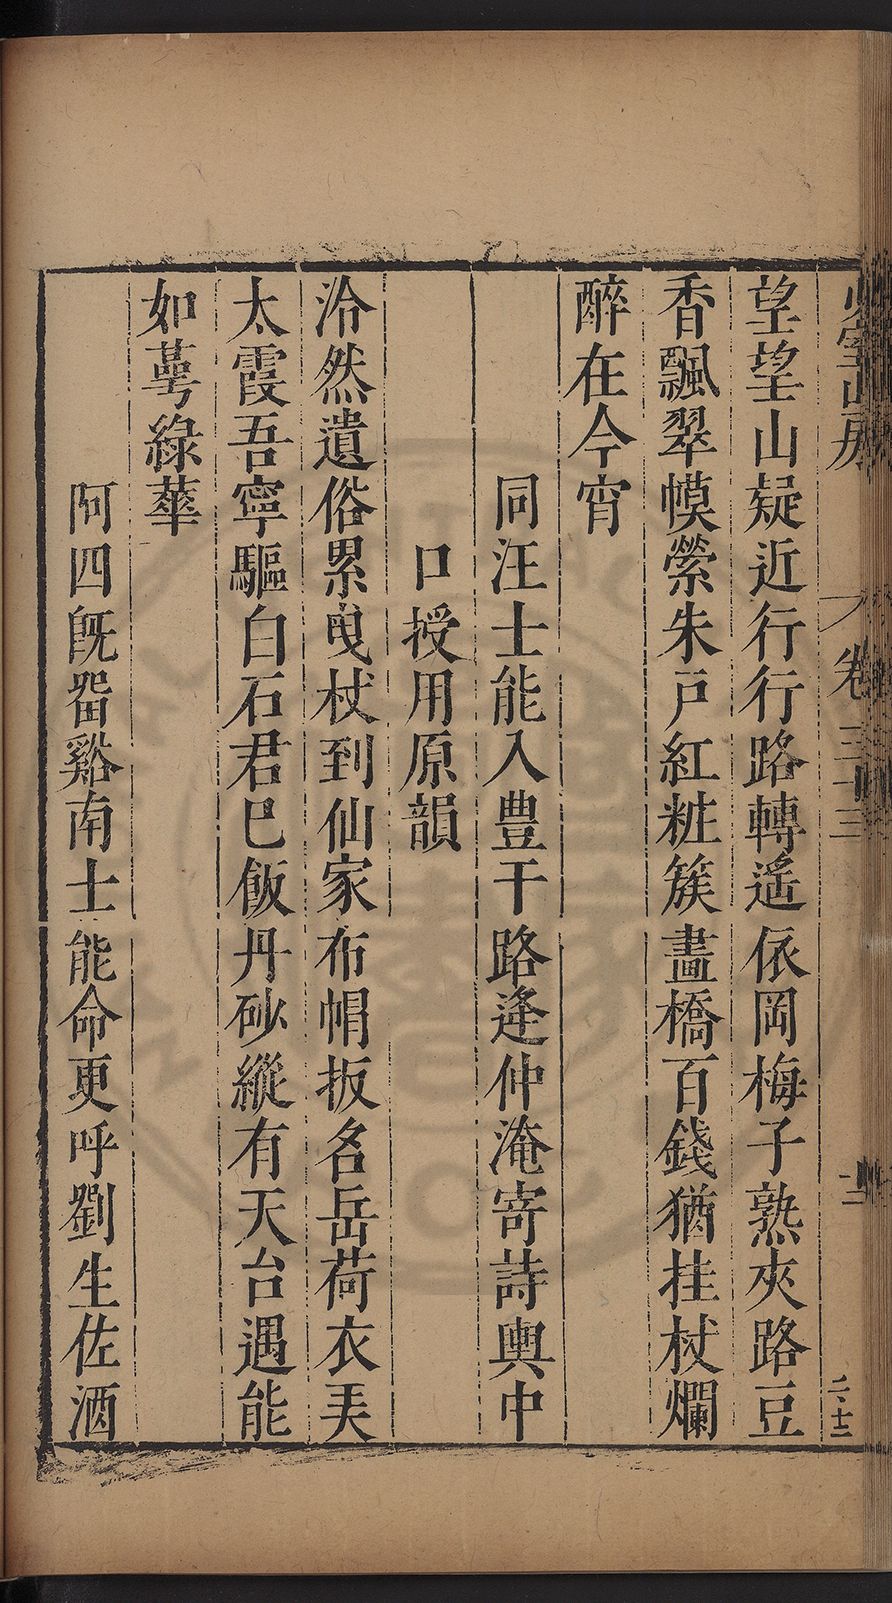 山房 卷三十三
望望山疑近行行路轉遙依岡梅子熟夾路豆
香飄翠幙縈朱戸紅粧簇畵橋百錢猶挂杖爛
醉在今宵
同汪士能入豊干路逢仲淹寄詩輿中
口授用原韻
泠然遺俗累曳杖到仙家布帽扳名岳荷衣
太霞吾寧驅白石君巳飯丹砂縱有天台遇能
如萼綠華
阿四旣畱谿南士能命更呼劉生佐酒